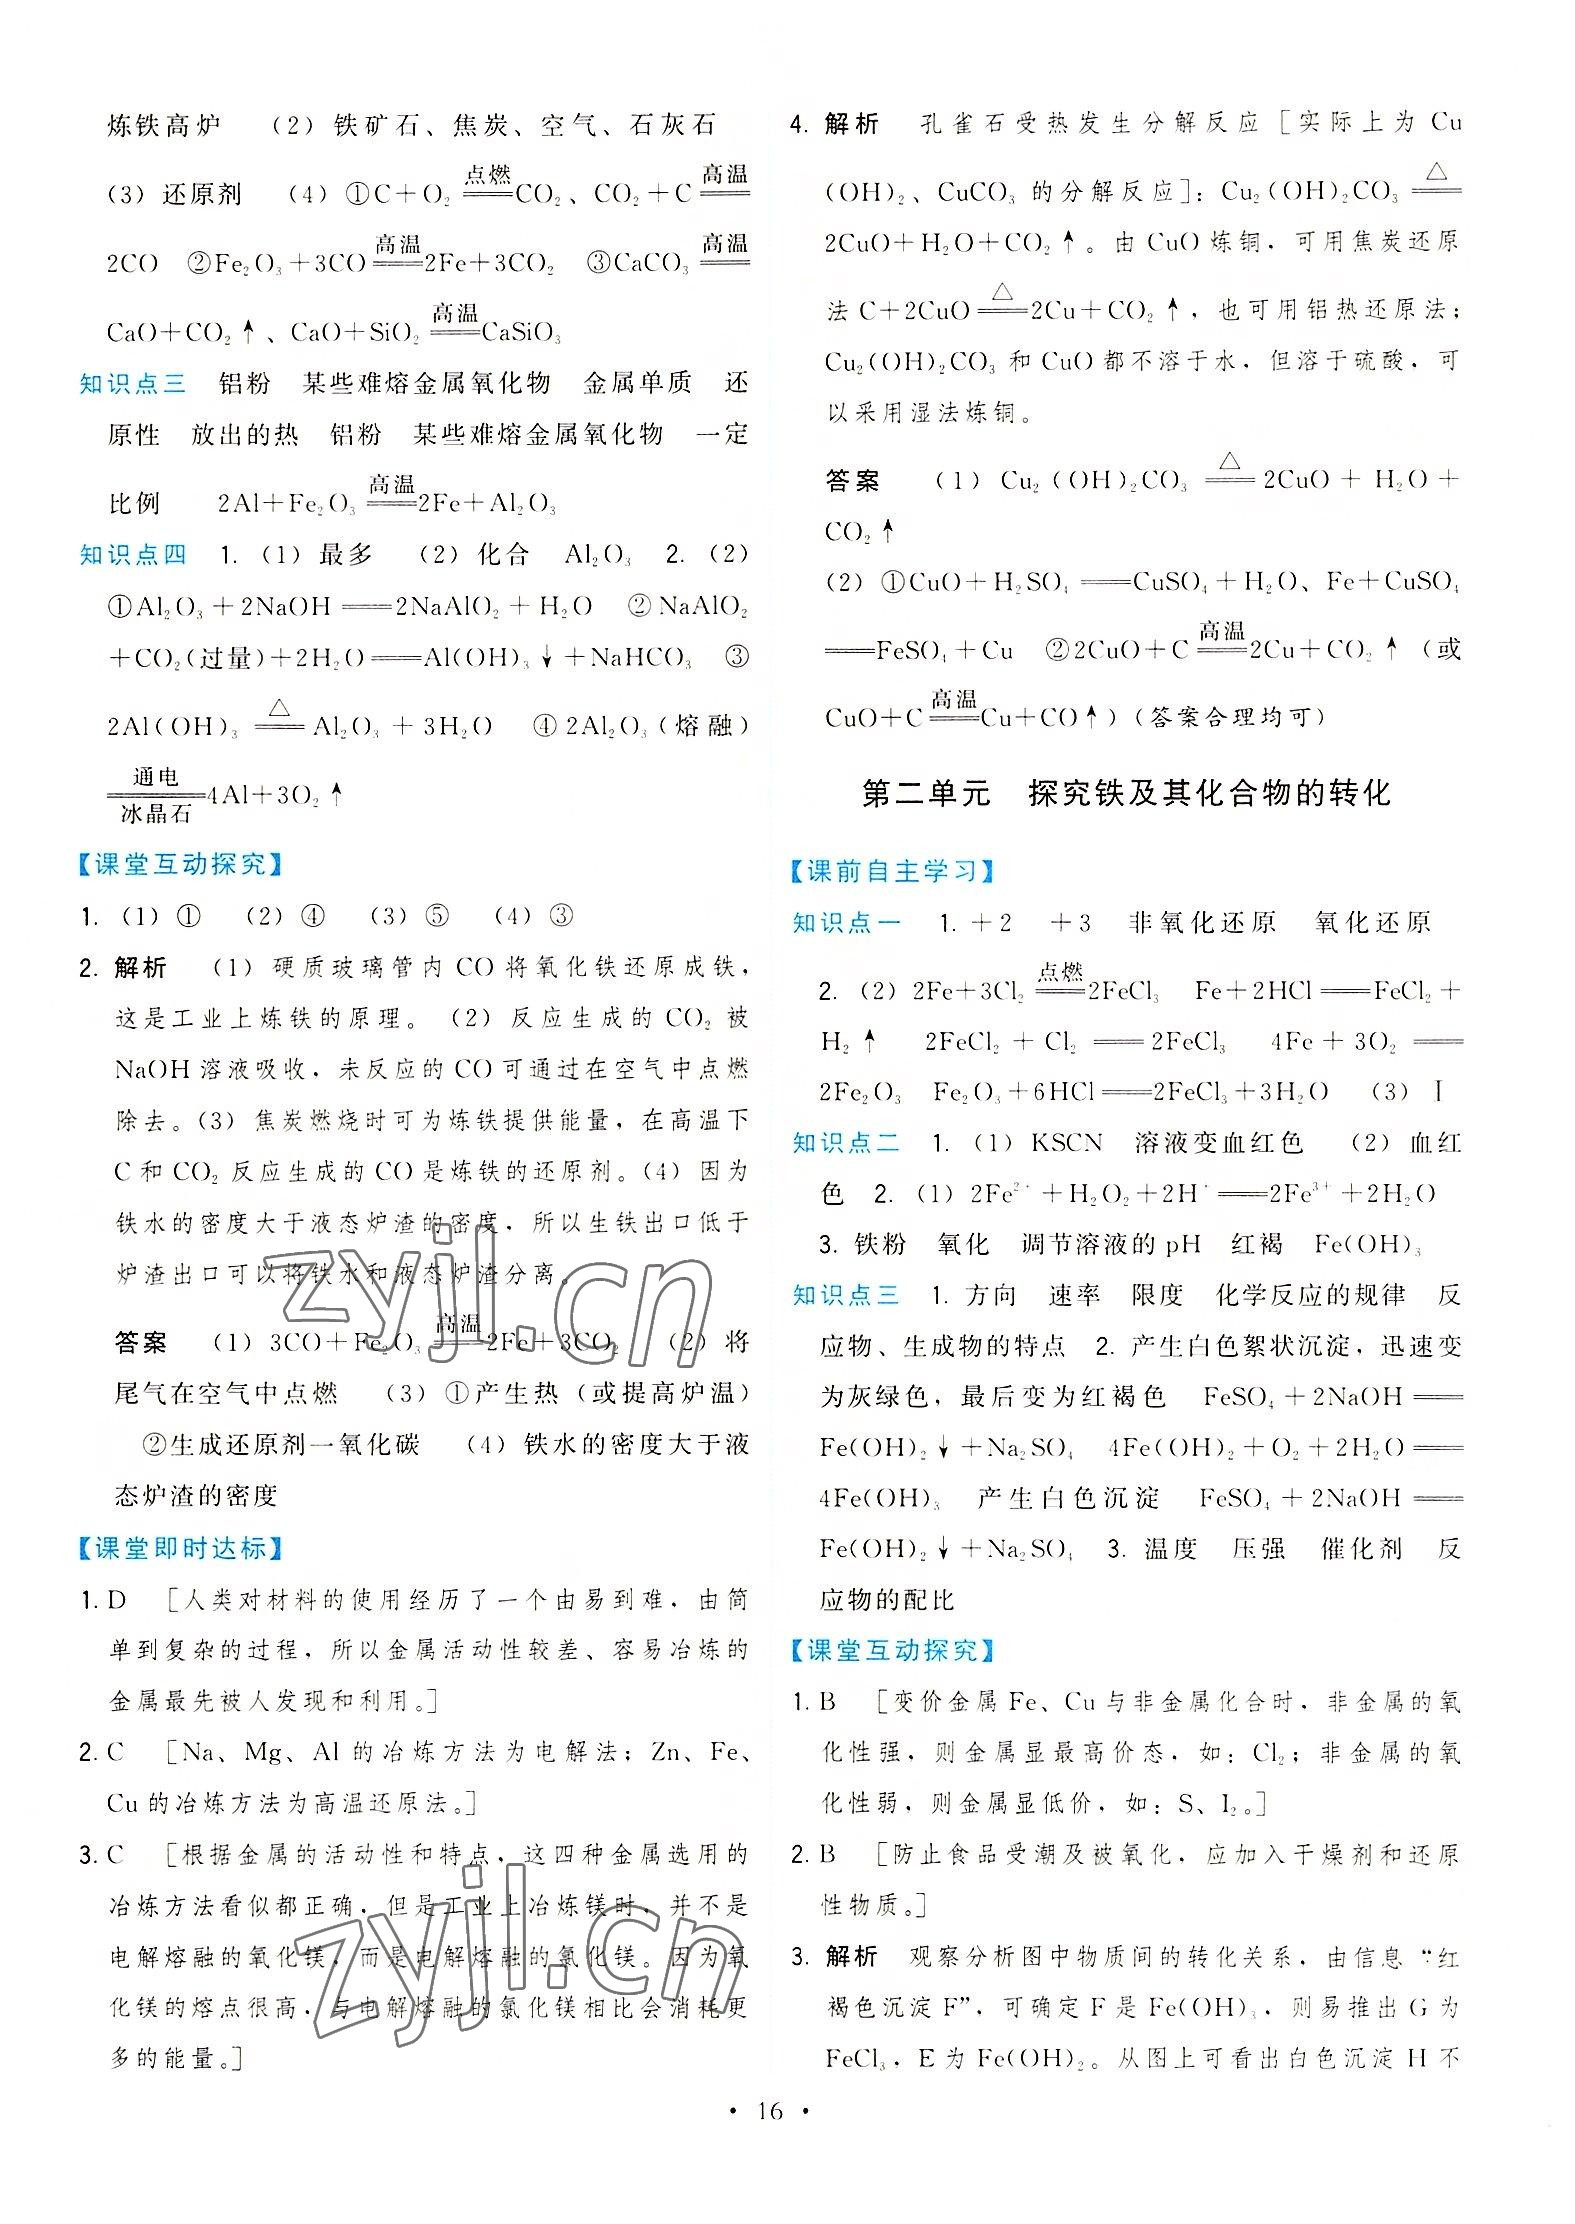 炼铁高炉　(2)铁矿石、焦炭、空气、石灰石
(3)还原剂　(4)①C+O₂ 点燃══ CO₂、CO₂+C 高温══
2CO　②Fe₂O₃+3CO 高温══ 2Fe+3CO₂　③CaCO₃ 高温══
CaO+CO₂↑、CaO+SiO₂ 高温══ CaSiO₃
知识点三　铝粉　某些难熔金属氧化物　金属单质　还
原性　放出的热　铝粉　某些难熔金属氧化物　一定
比例　2Al+Fe₂O₃ 高温══ 2Fe+Al₂O₃
知识点四　1.(1)最多　(2)化合　Al₂O₃　2.(2)
①Al₂O₃+2NaOH══2NaAlO₂+H₂O　②NaAlO₂
+CO₂(过量)+2H₂O══Al(OH)₃↓+NaHCO₃　③
2Al(OH)₃ △══ Al₂O₃+3H₂O　④2Al₂O₃(熔融)
通电══冰晶石 4Al+3O₂↑
【课堂互动探究】
1.(1)①　(2)④　(3)⑤　(4)③
2. 解析　(1)硬质玻璃管内CO将氧化铁还原成铁，
这是工业上炼铁的原理。(2)反应生成的CO₂被
NaOH溶液吸收，未反应的CO可通过在空气中点燃
除去。(3)焦炭燃烧时可为炼铁提供能量，在高温下
C和CO₂反应生成的CO是炼铁的还原剂。(4)因为
铁水的密度大于液态炉渣的密度，所以生铁出口低于
炉渣出口可以将铁水和液态炉渣分离。
答案　(1)3CO+Fe₂O₃ 高温══ 2Fe+3CO₂　(2)将
尾气在空气中点燃　(3)①产生热(或提高炉温)
②生成还原剂一氧化碳　(4)铁水的密度大于液
态炉渣的密度
【课堂即时达标】
1. D　[人类对材料的使用经历了一个由易到难，由简
单到复杂的过程，所以金属活动性较差、容易冶炼的
金属最先被人发现和利用。]
2. C　[Na、Mg、Al的冶炼方法为电解法；Zn、Fe、
Cu的冶炼方法为高温还原法。]
3. C　[根据金属的活动性和特点，这四种金属选用的
冶炼方法看似都正确，但是工业上冶炼镁时，并不是
电解熔融的氧化镁，而是电解熔融的氯化镁。因为氧
化镁的熔点很高，与电解熔融的氯化镁相比会消耗更
多的能量。]
4. 解析　孔雀石受热发生分解反应[实际上为Cu
(OH)₂、CuCO₃的分解反应]：Cu₂(OH)₂CO₃ △══
2CuO+H₂O+CO₂↑。由CuO炼铜，可用焦炭还原
法C+2CuO △══ 2Cu+CO₂↑，也可用铝热还原法；
Cu₂(OH)₂CO₃和CuO都不溶于水，但溶于硫酸，可
以采用湿法炼铜。
答案　(1)Cu₂(OH)₂CO₃ △══ 2CuO+H₂O+
CO₂↑
(2)①CuO+H₂SO₄══CuSO₄+H₂O、Fe+CuSO₄
══FeSO₄+Cu　②2CuO+C 高温══ 2Cu+CO₂↑(或
CuO+C 高温══ Cu+CO↑)(答案合理均可)
第二单元　探究铁及其化合物的转化
【课前自主学习】
知识点一　1.+2　+3　非氧化还原　氧化还原
2.(2)2Fe+3Cl₂ 点燃══ 2FeCl₃　Fe+2HCl══FeCl₂+
H₂↑　2FeCl₂+Cl₂══2FeCl₃　4Fe+3O₂══
2Fe₂O₃　Fe₂O₃+6HCl══2FeCl₃+3H₂O　(3)Ⅰ
知识点二　1.(1)KSCN　溶液变血红色　(2)血红
色　2.(1)2Fe²⁺+H₂O₂+2H⁺══2Fe³⁺+2H₂O
3. 铁粉　氧化　调节溶液的pH　红褐　Fe(OH)₃
知识点三　1. 方向　速率　限度　化学反应的规律　反
应物、生成物的特点　2. 产生白色絮状沉淀，迅速变
为灰绿色，最后变为红褐色　FeSO₄+2NaOH══
Fe(OH)₂↓+Na₂SO₄　4Fe(OH)₂+O₂+2H₂O══
4Fe(OH)₃　产生白色沉淀　FeSO₄+2NaOH══
Fe(OH)₂↓+Na₂SO₄　3. 温度　压强　催化剂　反
应物的配比
【课堂互动探究】
1. B　[变价金属Fe、Cu与非金属化合时，非金属的氧
化性强，则金属显最高价态，如：Cl₂；非金属的氧
化性弱，则金属显低价，如：S、I₂。]
2. B　[防止食品受潮及被氧化，应加入干燥剂和还原
性物质。]
3. 解析　观察分析图中物质间的转化关系，由信息“红
褐色沉淀F”，可确定F是Fe(OH)₃，则易推出G为
FeCl₃，E为Fe(OH)₂。从图上可看出白色沉淀H不
· 16 ·
zyjl.cn
zyjl.cn